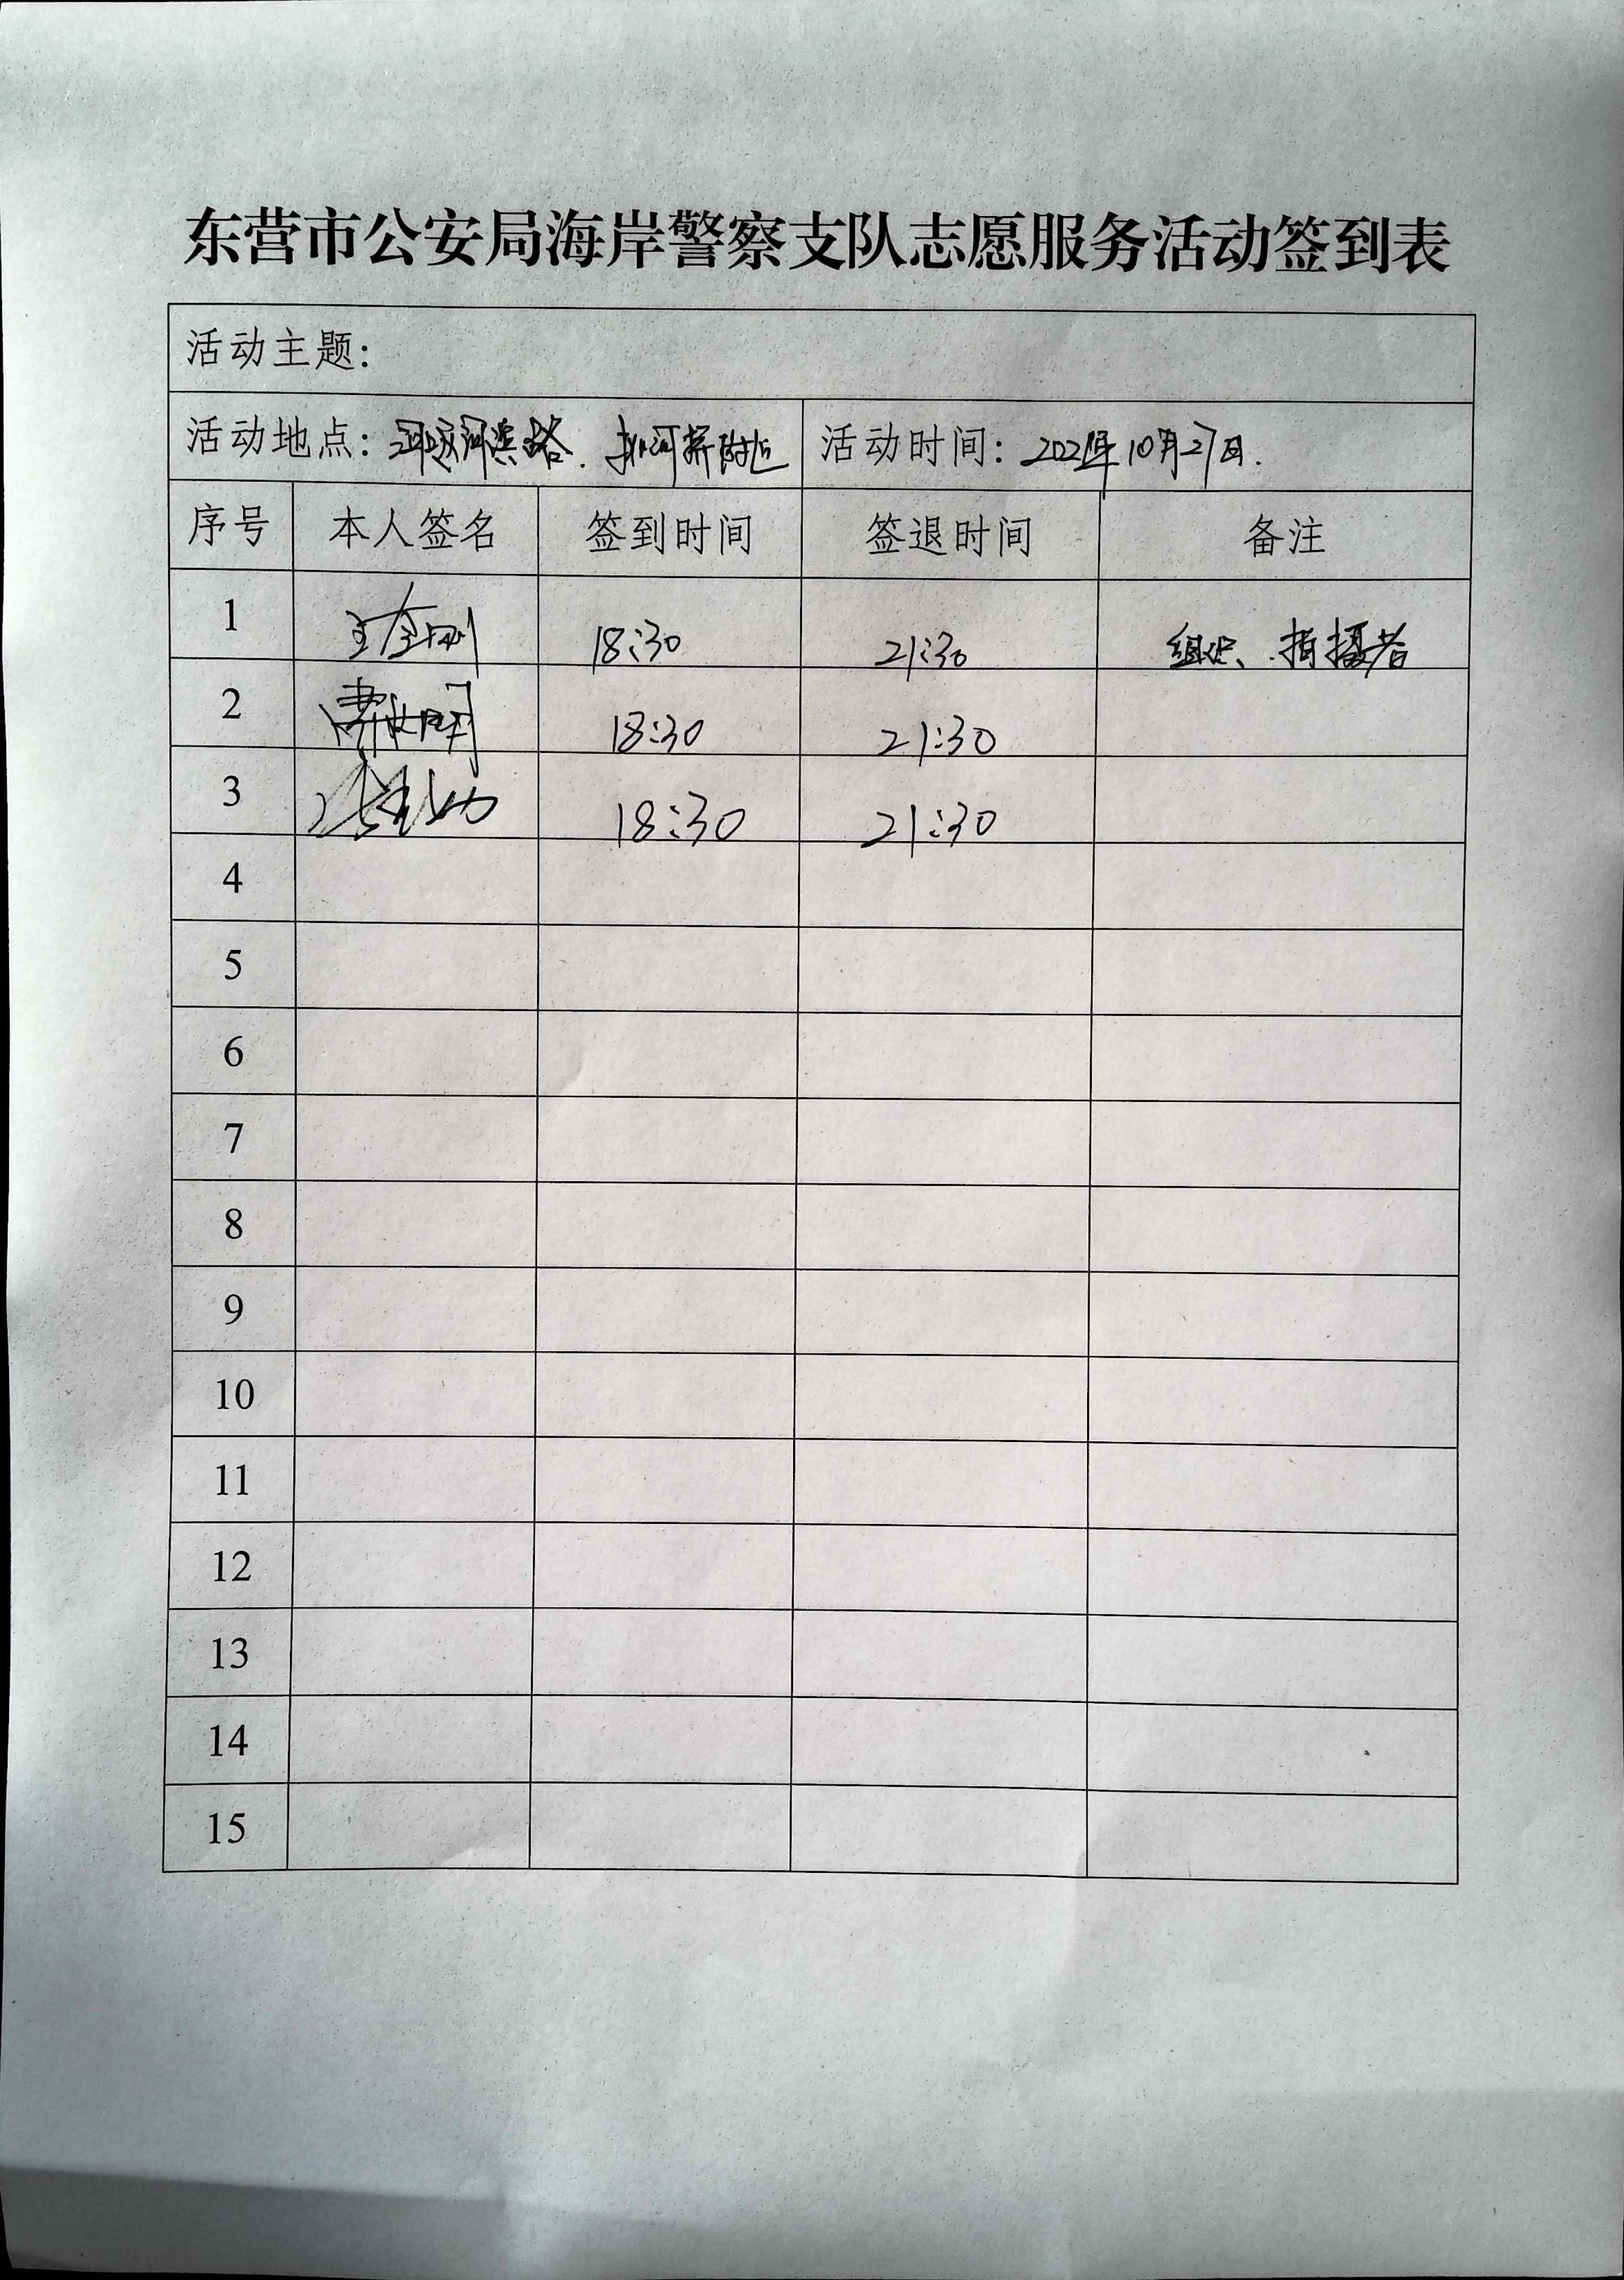 东营市公安局海岸警察支队志愿服务活动签到表
活动主题：
活动地点： 活动时间：2021年10月27日.
序号 本人签名 签到时间 签退时间 备注
1 18:30 21:30 组织、拍摄者
2 18:30 21:30
3 18:30 21:30
4
5
6
7
8
9
10
11
12
13
14
15